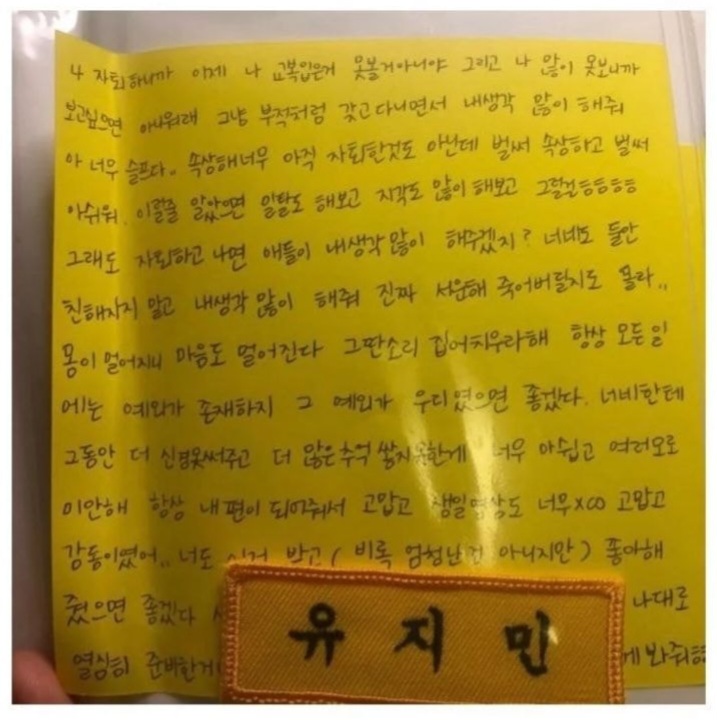 나 자퇴하니까 이제 나 교복입은거 못볼거아니야 그리고 나 많이 못보니까
보고싶으면 아쉬워래 그냥 부적처럼 갖고다니면서 내생각 많이 해줘
아 너무 슬프다.. 속상해너무 아직 자퇴한것도 아닌데 벌써 속상하고 벌써
아쉬워. 이럴줄 알았으면 일탈도 해보고 지각도 많이 해보고 그럴걸ㅎㅎㅎㅎ
그래도 자퇴하고 나면 애들이 내생각 많이 해주겠지? 너네도 둘만
친해지지 말고 내생각 많이 해줘 진짜 서운해 죽어버릴지도 몰라..
몸이 멀어지니 마음도 멀어진다 그딴소리 집어치우라해 항상 모든일
에는 예외가 존재하지 그 예외가 우리였으면 좋겠다. 너네한테
그동안 더 신경못써주고 더 많은추억 쌓지못한게 너무 아쉽고 여러모로
미안해 항상 내편이 되어줘서 고맙고 생일영상도 너무xco 고맙고
감동이였어.. 너도 이거 받고 ( 비록 엄청난건 아니지만 ) 좋아해
줬으면 좋겠다 나대로
열심히 준비한거 게 봐줘ㅎㅎ
유지민